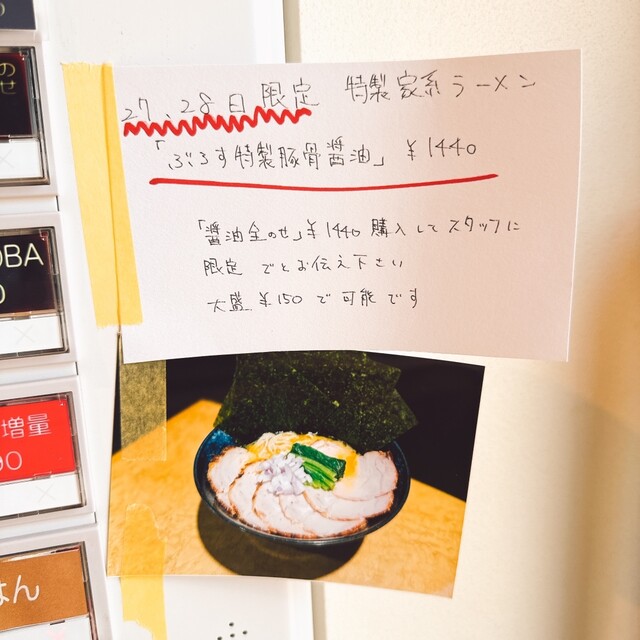 27、28日限定 特製家系ラーメン
「ぶろす特製豚骨醤油」 ¥1440
「醤油全のせ」¥1440 購入してスタッフに
限定 でとお伝え下さい
大盛 ¥150 で可能です
の
せ
OBA
0
増量
00
はん